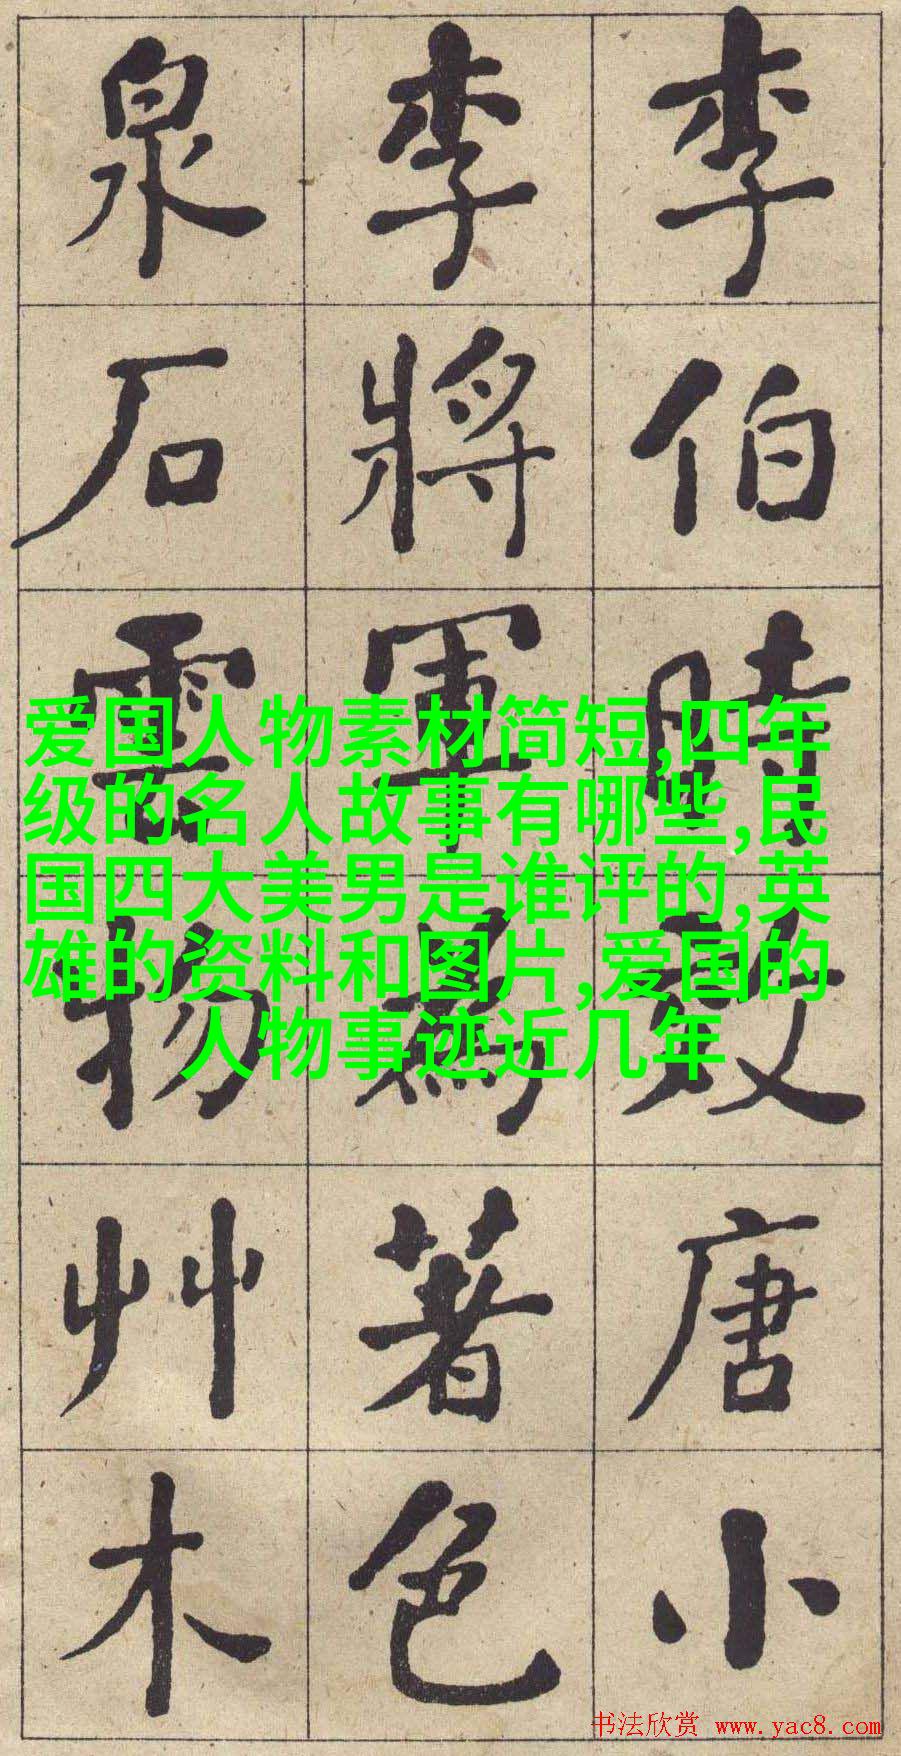 李伯時效唐小
李將軍為著色
泉石雲物艸木
爱国人物素材简短,四年
级的名人故事有哪些,民
国四大美男是谁评的,英
雄的资料和图片,爱国的
人物事迹近几年
书法欣赏 www.yac8.com